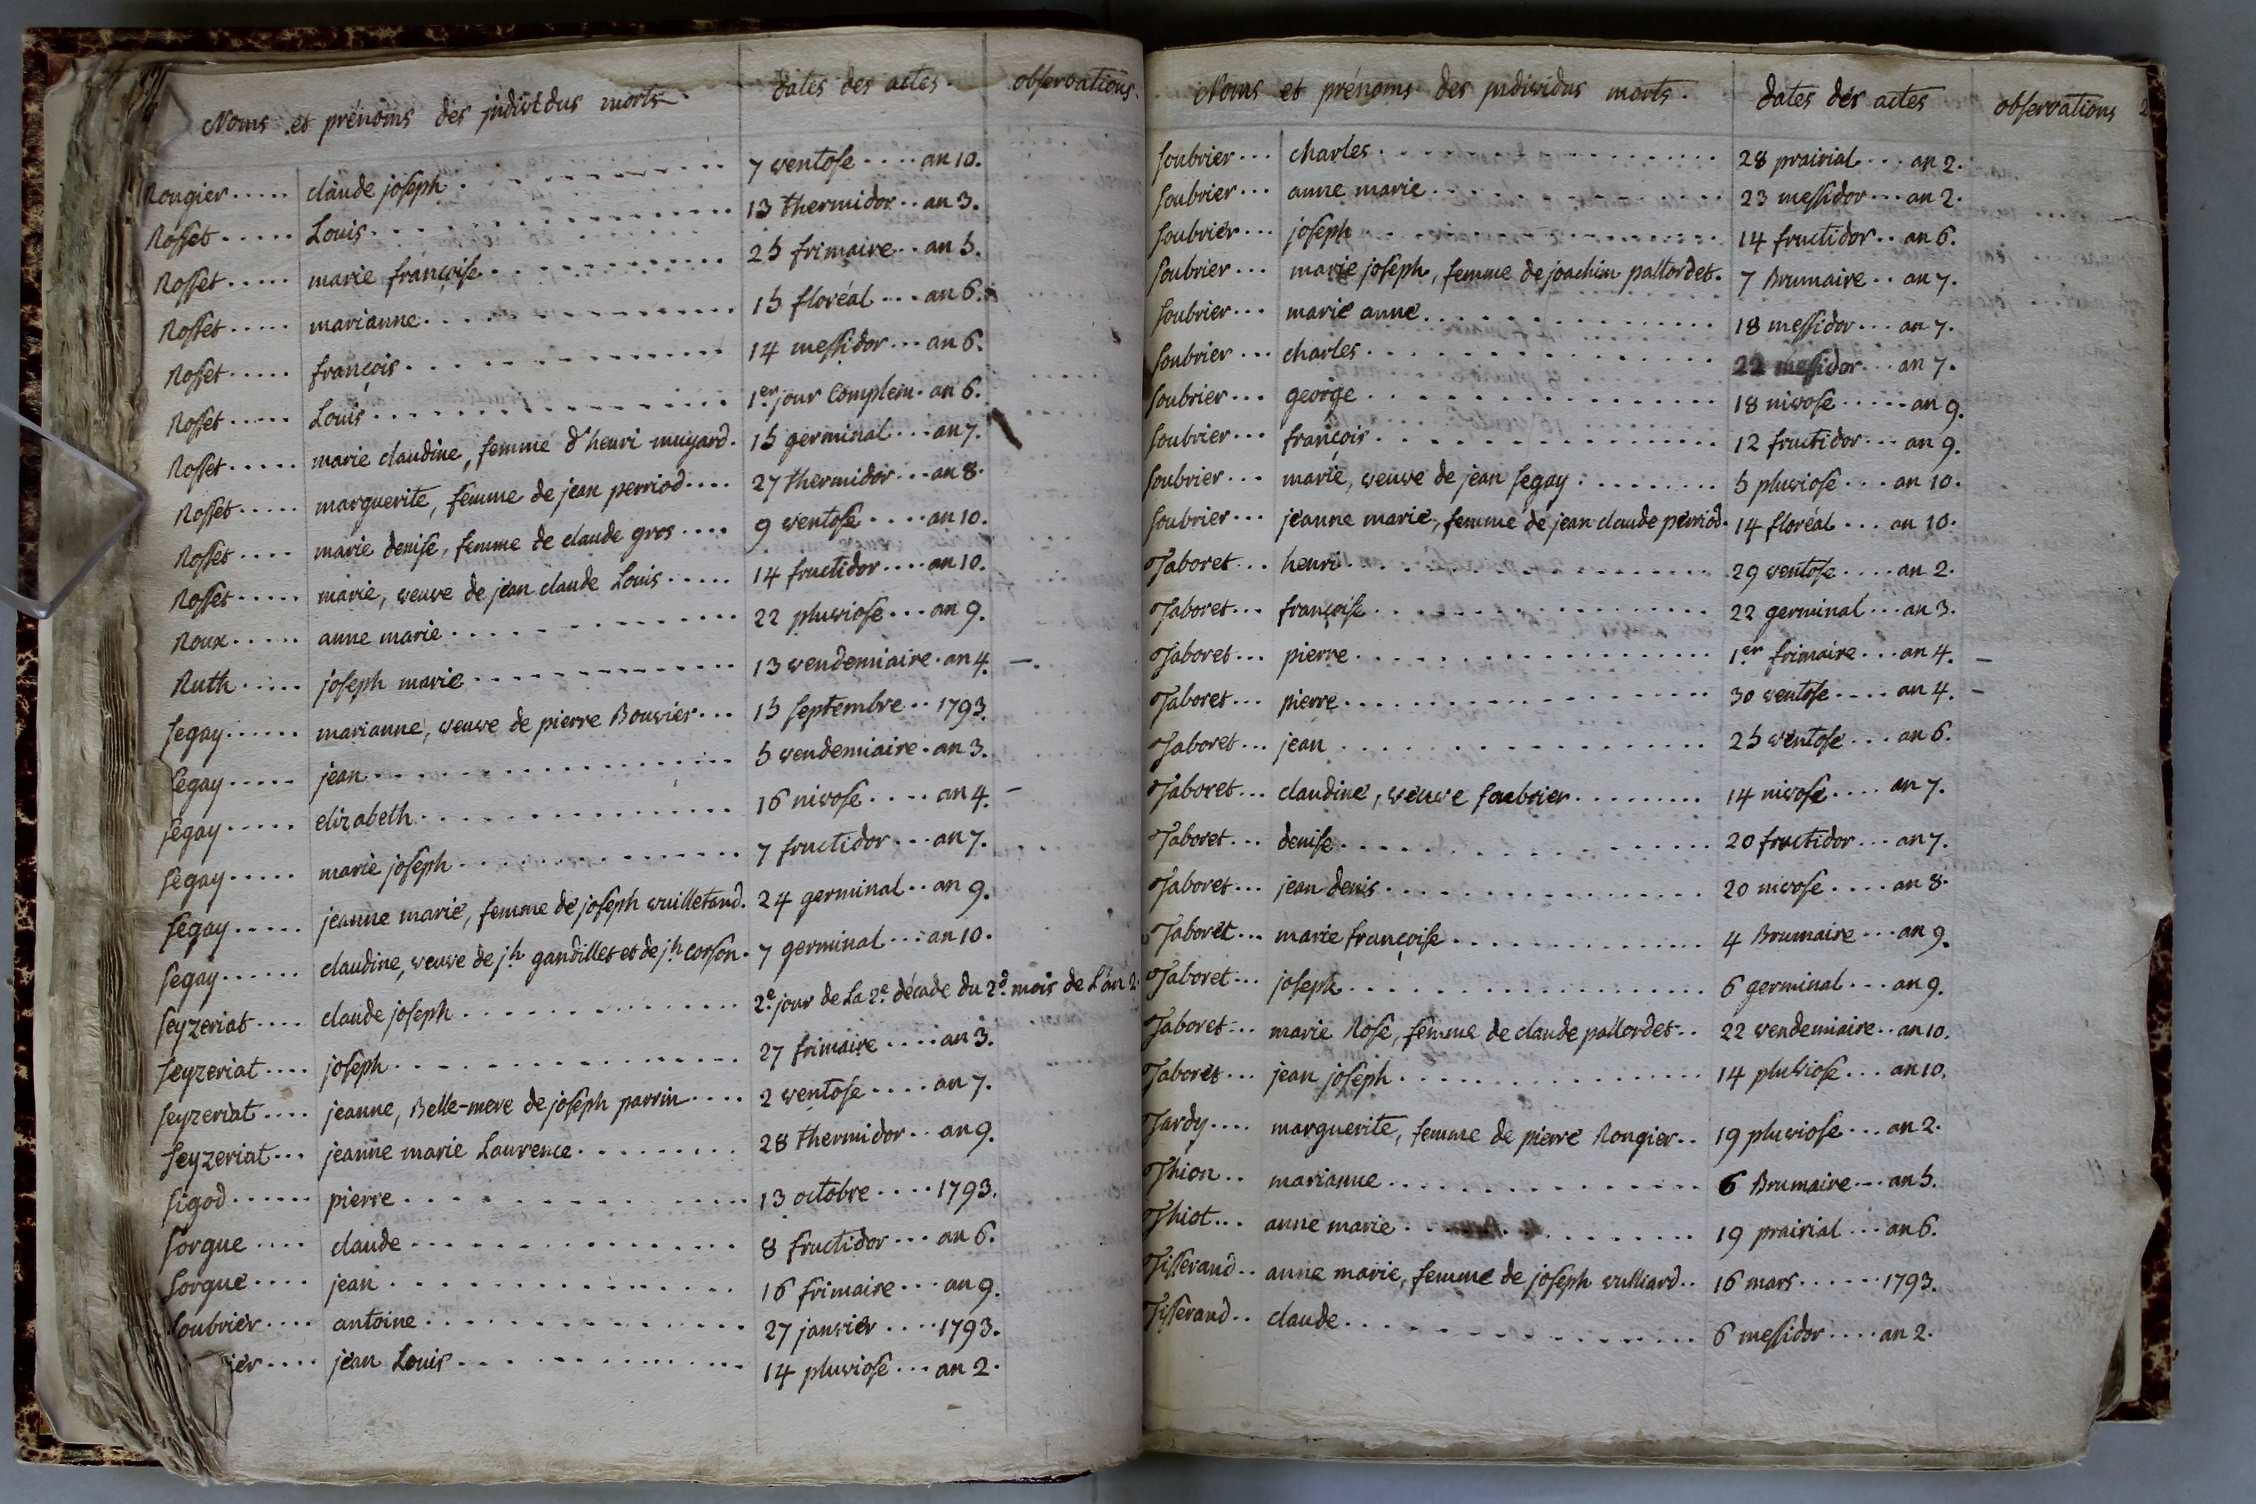 Noms et prénoms des individus morts. dates des actes. observations.
Rougier ..... claude joseph ..... 7 ventose .... an 10.
Rosset ..... Louis ..... 13 thermidor .. an 3.
Rosset ..... marie françoise ..... 25 frimaire .. an 5.
Rosset ..... marianne ..... 15 floréal ... an 6.
Rosset ..... françois ..... 14 messidor ... an 6.
Rosset ..... Louis ..... 1er jour Complem. an 6.
Rosset ..... marie claudine, femme d'henri muyard. 15 germinal ... an 7.
Rosset ..... marguerite, femme de jean perriod .... 27 thermidor ... an 8.
Rosset .... marie denise, femme de claude gros .... 9 ventose .... an 10.
Rosset ..... marie, veuve de jean claude Louis ..... 14 fructidor .... an 10.
Roux ..... anne marie ..... 22 pluviose ... an 9.
Ruth ..... joseph marie ..... 13 vendemiaire . an 4. —
Segay ...... marianne, veuve de pierre Bouvier ... 15 septembre .. 1793.
Segay ..... jean ..... 5 vendemiaire . an 3.
Segay ..... elizabeth ..... 16 nivose .... an 4. —
Segay ..... marie joseph ..... 7 fructidor ... an 7.
Segay ..... jeanne marie, femme de joseph vuilletand. 24 germinal .. an 9.
Segay ...... claudine, veuve de jh gandillet et de jh corson. 7 germinal ... an 10.
Seyzeriat .... claude joseph ..... 2e jour de La 2e décade du 2d mois de L'an 2.
Seyzeriat .... joseph ..... 27 frimaire .... an 3.
Seyzeriat .... jeanne, Belle-mere de joseph parrin .... 2 ventose .... an 7.
Seyzeriat ... jeanne marie Laurence ..... 28 thermidor .. an 9.
Sigod ...... pierre ..... 13 octobre .... 1793.
Sorgue .... claude ..... 8 fructidor ... an 6.
Sorgue .... jean ..... 16 frimaire ... an 9.
Soubrier .... antoine ..... 27 janvier .... 1793.
ier .... jean Louis ..... 14 pluviose ... an 2.
Noms et prénoms des individus morts. dates des actes observations 2
Soubrier ... charles ..... 28 prairial ... an 2.
Soubrier ... anne marie ..... 23 messidor ... an 2.
Soubrier ... joseph ..... 14 fructidor .. an 6.
Soubrier ... marie joseph, femme de joachim pallordet. 7 Brumaire .. an 7.
Soubrier ... marie anne ..... 18 messidor ... an 7.
Soubrier ... charles ..... 22 messidor ... an 7.
Soubrier ... george ..... 18 nivose ..... an 9.
Soubrier ... françois ..... 12 fructidor ... an 9.
Soubrier ... marie, veuve de jean Segay ..... 5 pluviose ... an 10.
Soubrier ... jeanne marie, femme de jean claude perriod. 14 floréal ... an 10.
Taboret ... henri ..... 29 ventose .... an 2.
Taboret ... françoise ..... 22 germinal ... an 3.
Taboret ... pierre ..... 1er frimaire ... an 4. —
Taboret ... pierre ..... 30 ventose .... an 4. —
Taboret ... jean ..... 25 ventose ... an 6.
Taboret ... claudine, veuve Soubrier ..... 14 nivose .... an 7.
Taboret ... denise ..... 20 fructidor ... an 7.
Taboret ... jean denis ..... 20 nivose .... an 8.
Taboret ... marie françoise ..... 4 Brumaire ... an 9.
Taboret ... joseph ..... 6 germinal ... an 9.
Taboret ... marie Rose, femme de claude pallordet .. 22 vendemiaire .. an 10.
Taboret ... jean joseph ..... 14 pluviose ... an 10.
Tardy .... marguerite, femme de pierre Rougier .. 19 pluviose ... an 2.
Thion .. marianne ..... 6 Brumaire ... an 5.
Thiot ... anne marie ..... 19 prairial ... an 6.
Tisserand .. anne marie, femme de joseph vulliard .. 16 mars ...... 1793.
Tisserand .. claude ..... 6 messidor .... an 2.